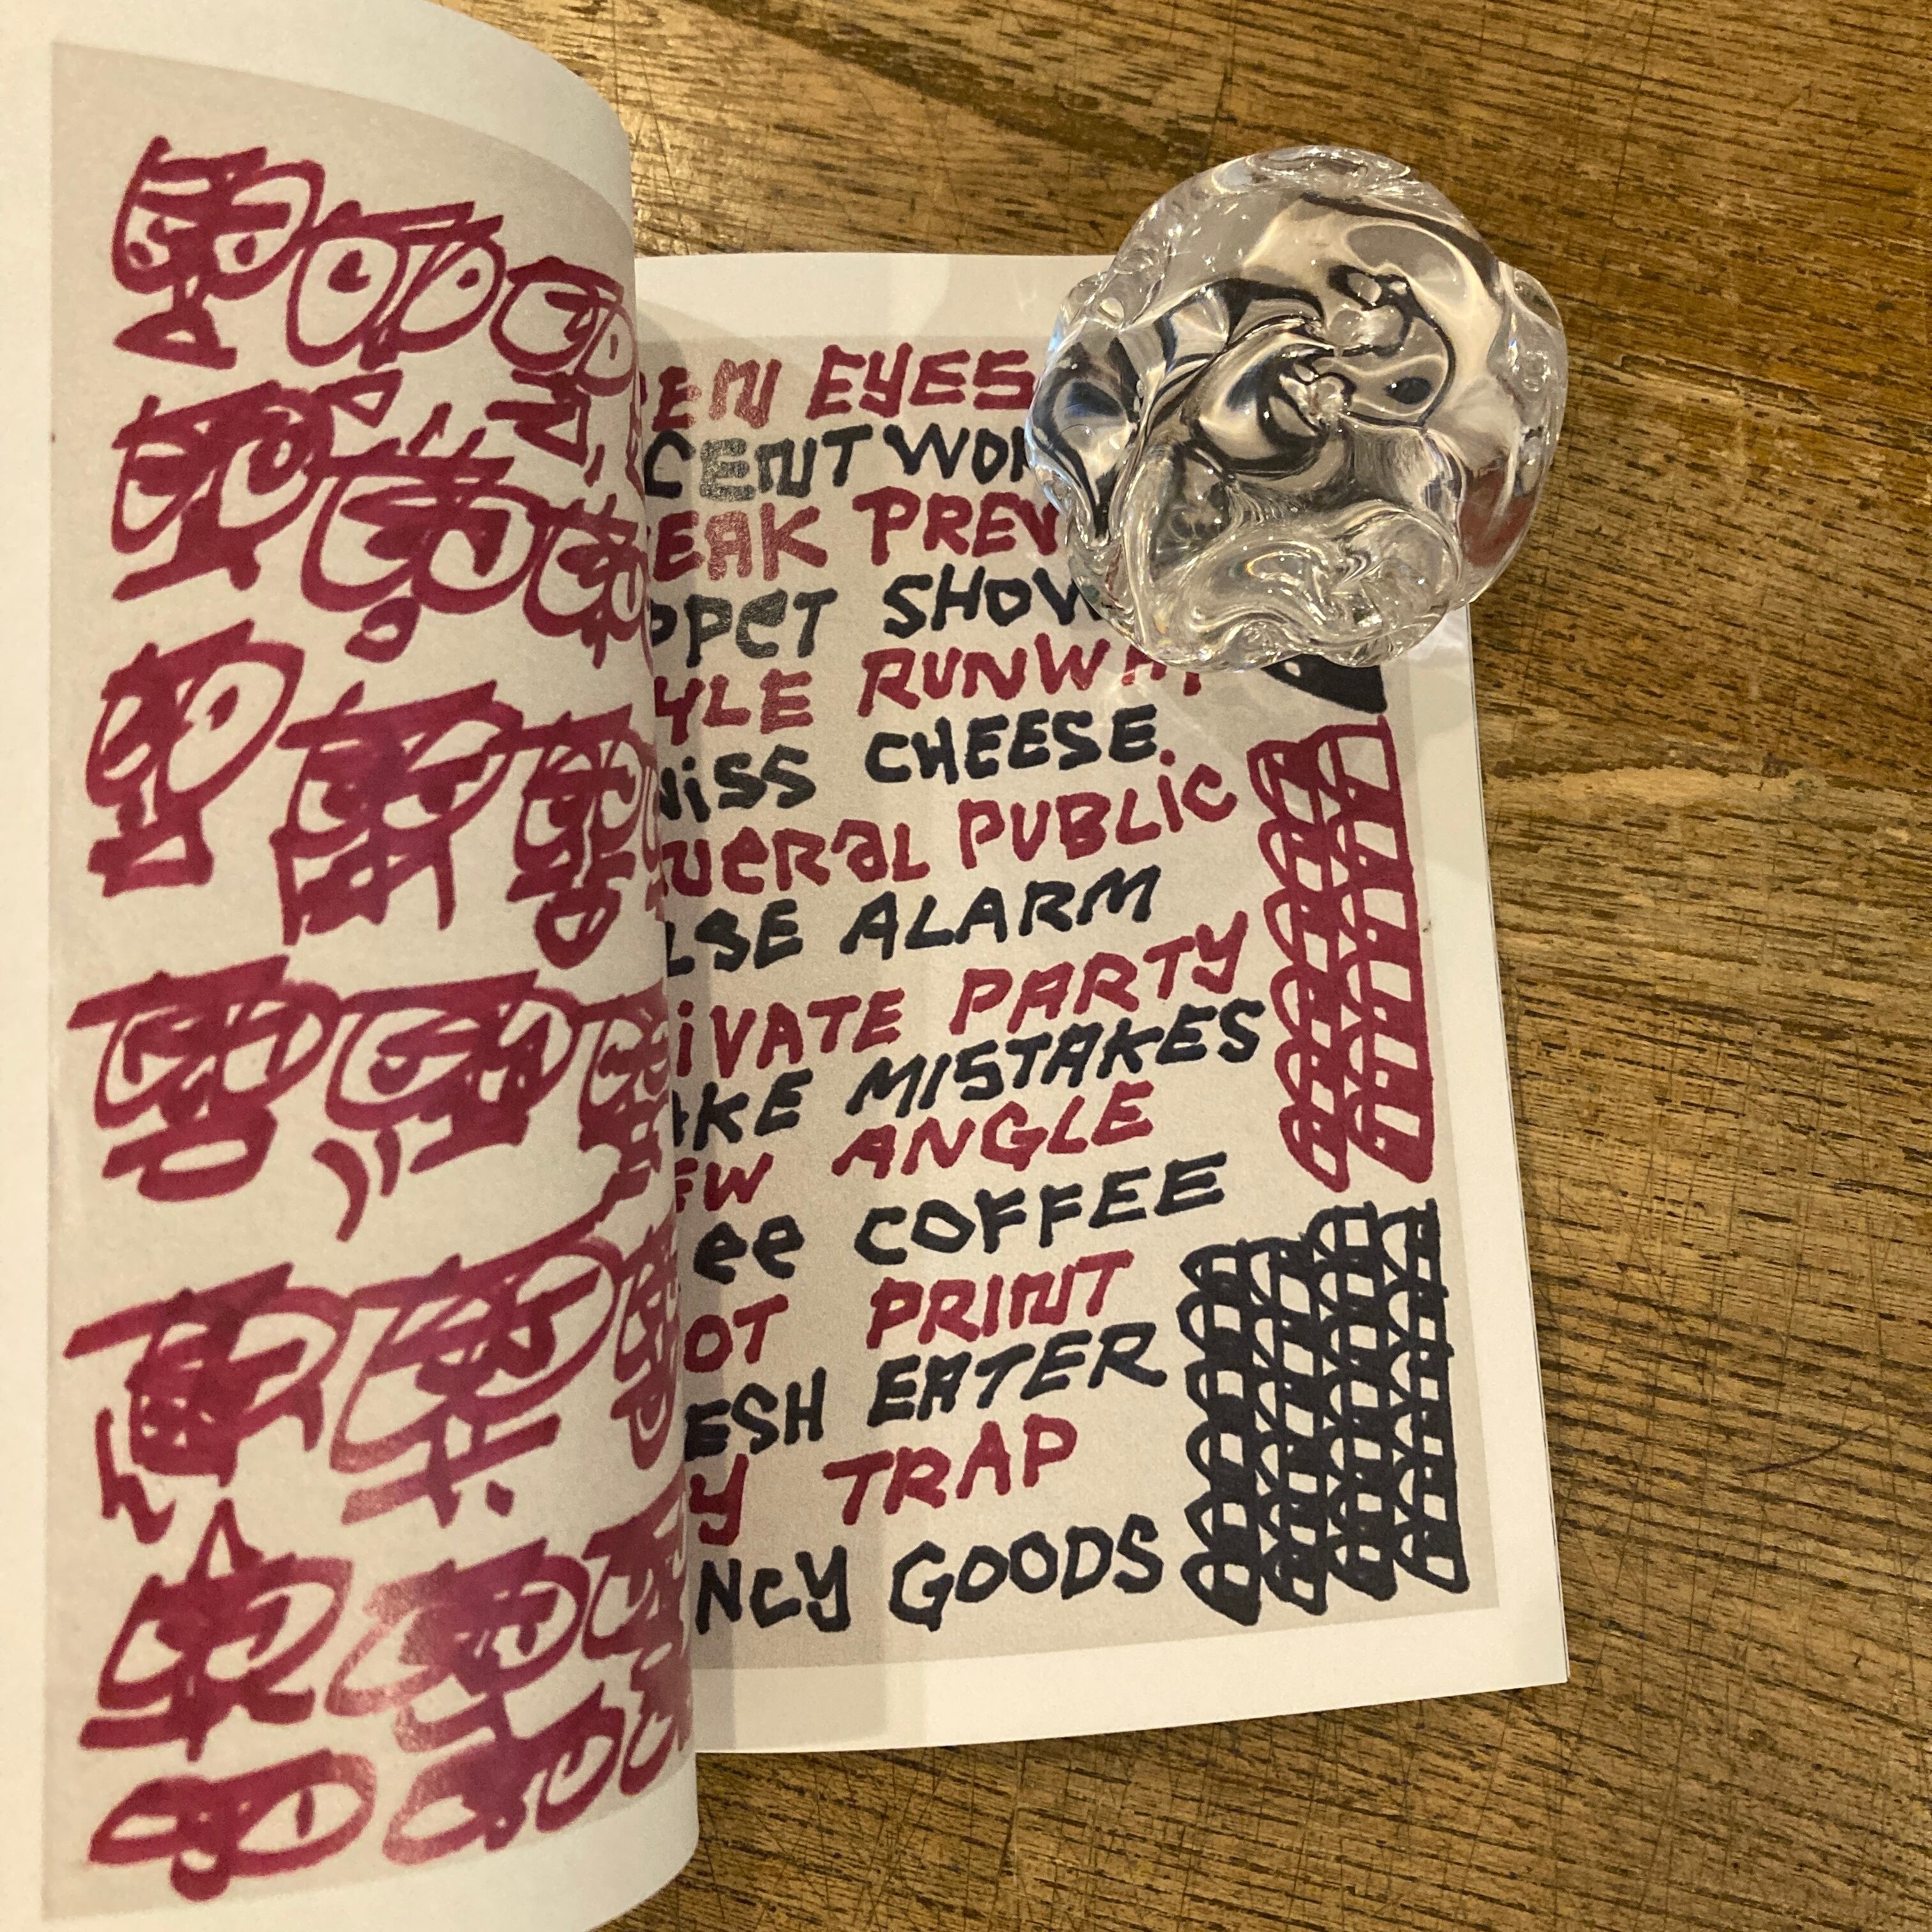 EN EYES
CENT WOR
EAK PREV
PPET SHOW
YLE RUNWAY
WISS CHEESE
NERAL PUBLIC
LSE ALARM
IVATE PARTY
AKE MISTAKES
EW ANGLE
ee COFFEE
OT PRINT
ESH EATER
Y TRAP
NCY GOODS